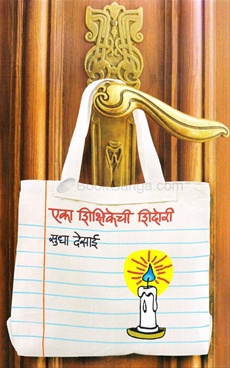 BookGanga.com
एका शिक्षिकेची शिदोरी
सुधा देसाई